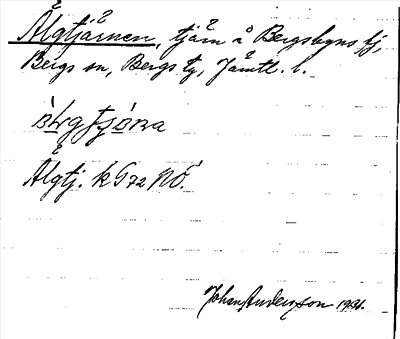 Älgtjärnen, tjärn å Bergsbyns fj,
Bergs sn, Bergs tg, Jämtl. l.
Älgtj. k G 72 NÖ.
Johan Anderzon 1931.